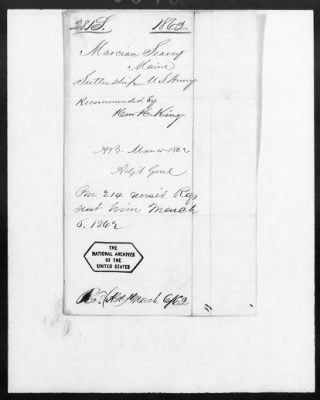 281 S. 1862.
Marcian Seavey
Maine
Sutlership U.S. Army
Recommended by
Hon H. King
Mar 1862
Adjt Genl
214
sent him March
6. 1862
THE
NATIONAL ARCHIVES
OF THE
UNITED STATES
March 6/62